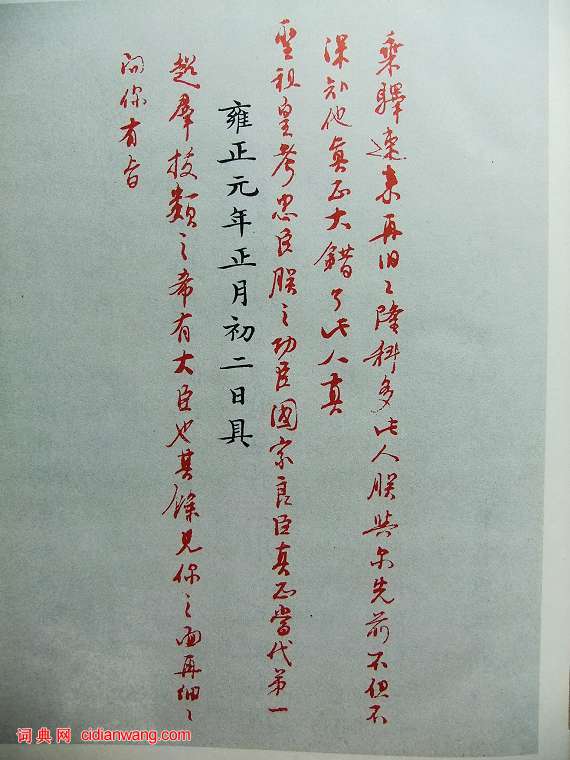 乘驛速來再旧〻隆科多此人朕與尔先前不但不
深知他真正大錯了此人真
聖祖皇考忠臣朕之功臣國家良臣真正當代第一
雍正元年正月初二日具
超羣拔類之希有大臣也其餘見你之面再細〻
問你有旨
词典网 cidianwang.com